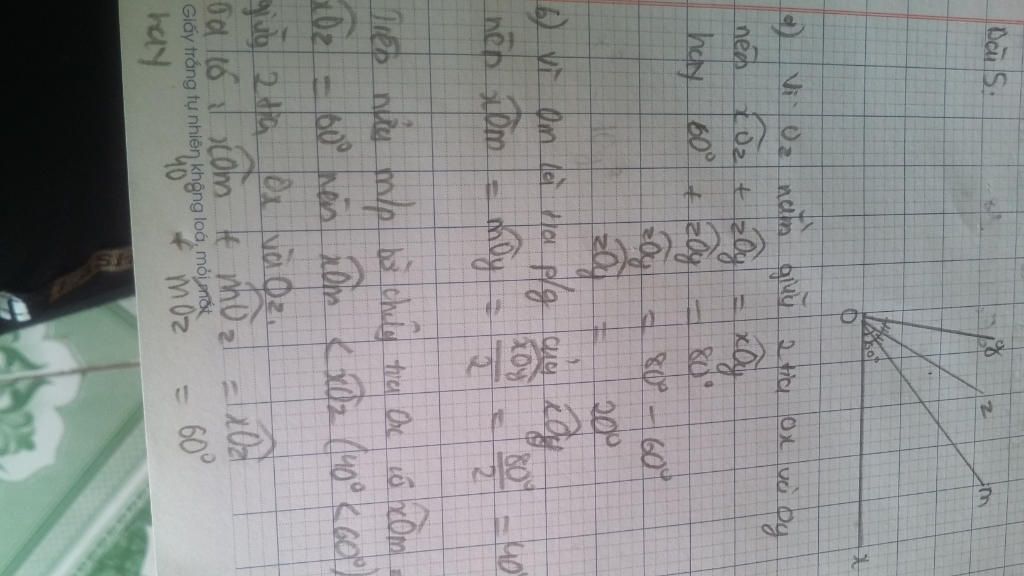 Bài 5:
y
z
m
O
x
a) Vì Oz nằm giữa 2 tia Ox và Oy
nên xOz + zOy = xOy
hay 60° + zOy = 80°
zOy = 80° - 60°
zOy = 20°
b) Vì Om là tia p/g của xOy
nên xOm = mOy = xOy/2 = 80°/2 = 40°
Trên nửa m/p bờ chứa tia Ox có xOm =
xOz = 60° nên xOm < xOz (40° < 60°)
giữa 2 tia Ox và Oz.
Ta có: xOm + mOz = xOz
Giấy trắng tự nhiên không loá, mỏi mắt
hay 40 + mOz = 60°